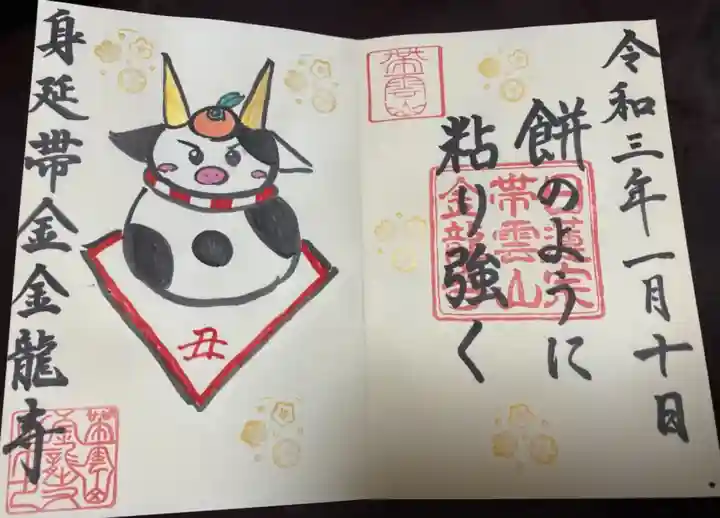 令和三年一月十日
餅のように
粘り強く
帯雲山
日蓮宗
帯雲山
金龍寺
丑
身延帯金金龍寺